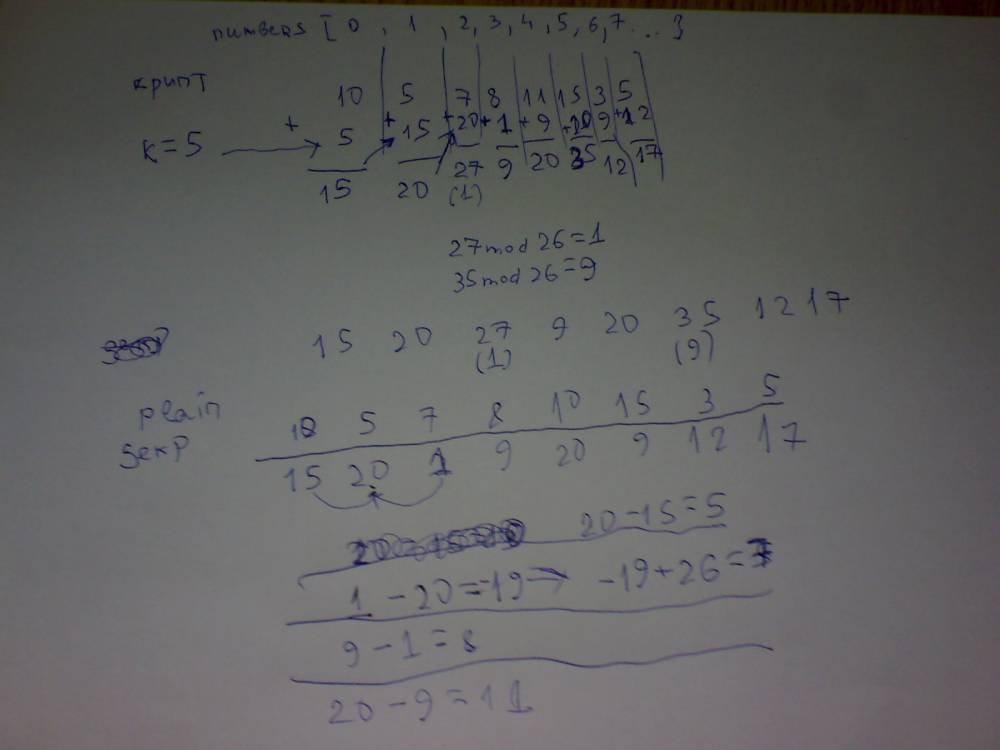 numbers [ 0 , 1 , 2, 3, 4, 5, 6, 7 ... ]
крипт
10 5 7 8 11 15 3 5
k=5 → + 5 + 15 + 20 + 1 + 9 + 20 9 + 12
15 20 27 9 20 35 12 17
(1)
27 mod 26 = 1
35 mod 26 = 9
15 20 27 9 20 35 12 17
(1) (9)
plain 10 5 7 8 10 15 3 5
15 20 1 9 20 9 12 17
20 - 15 = 5
1 - 20 = -19 → -19 + 26 = 7
9 - 1 = 8
20 - 9 = 11